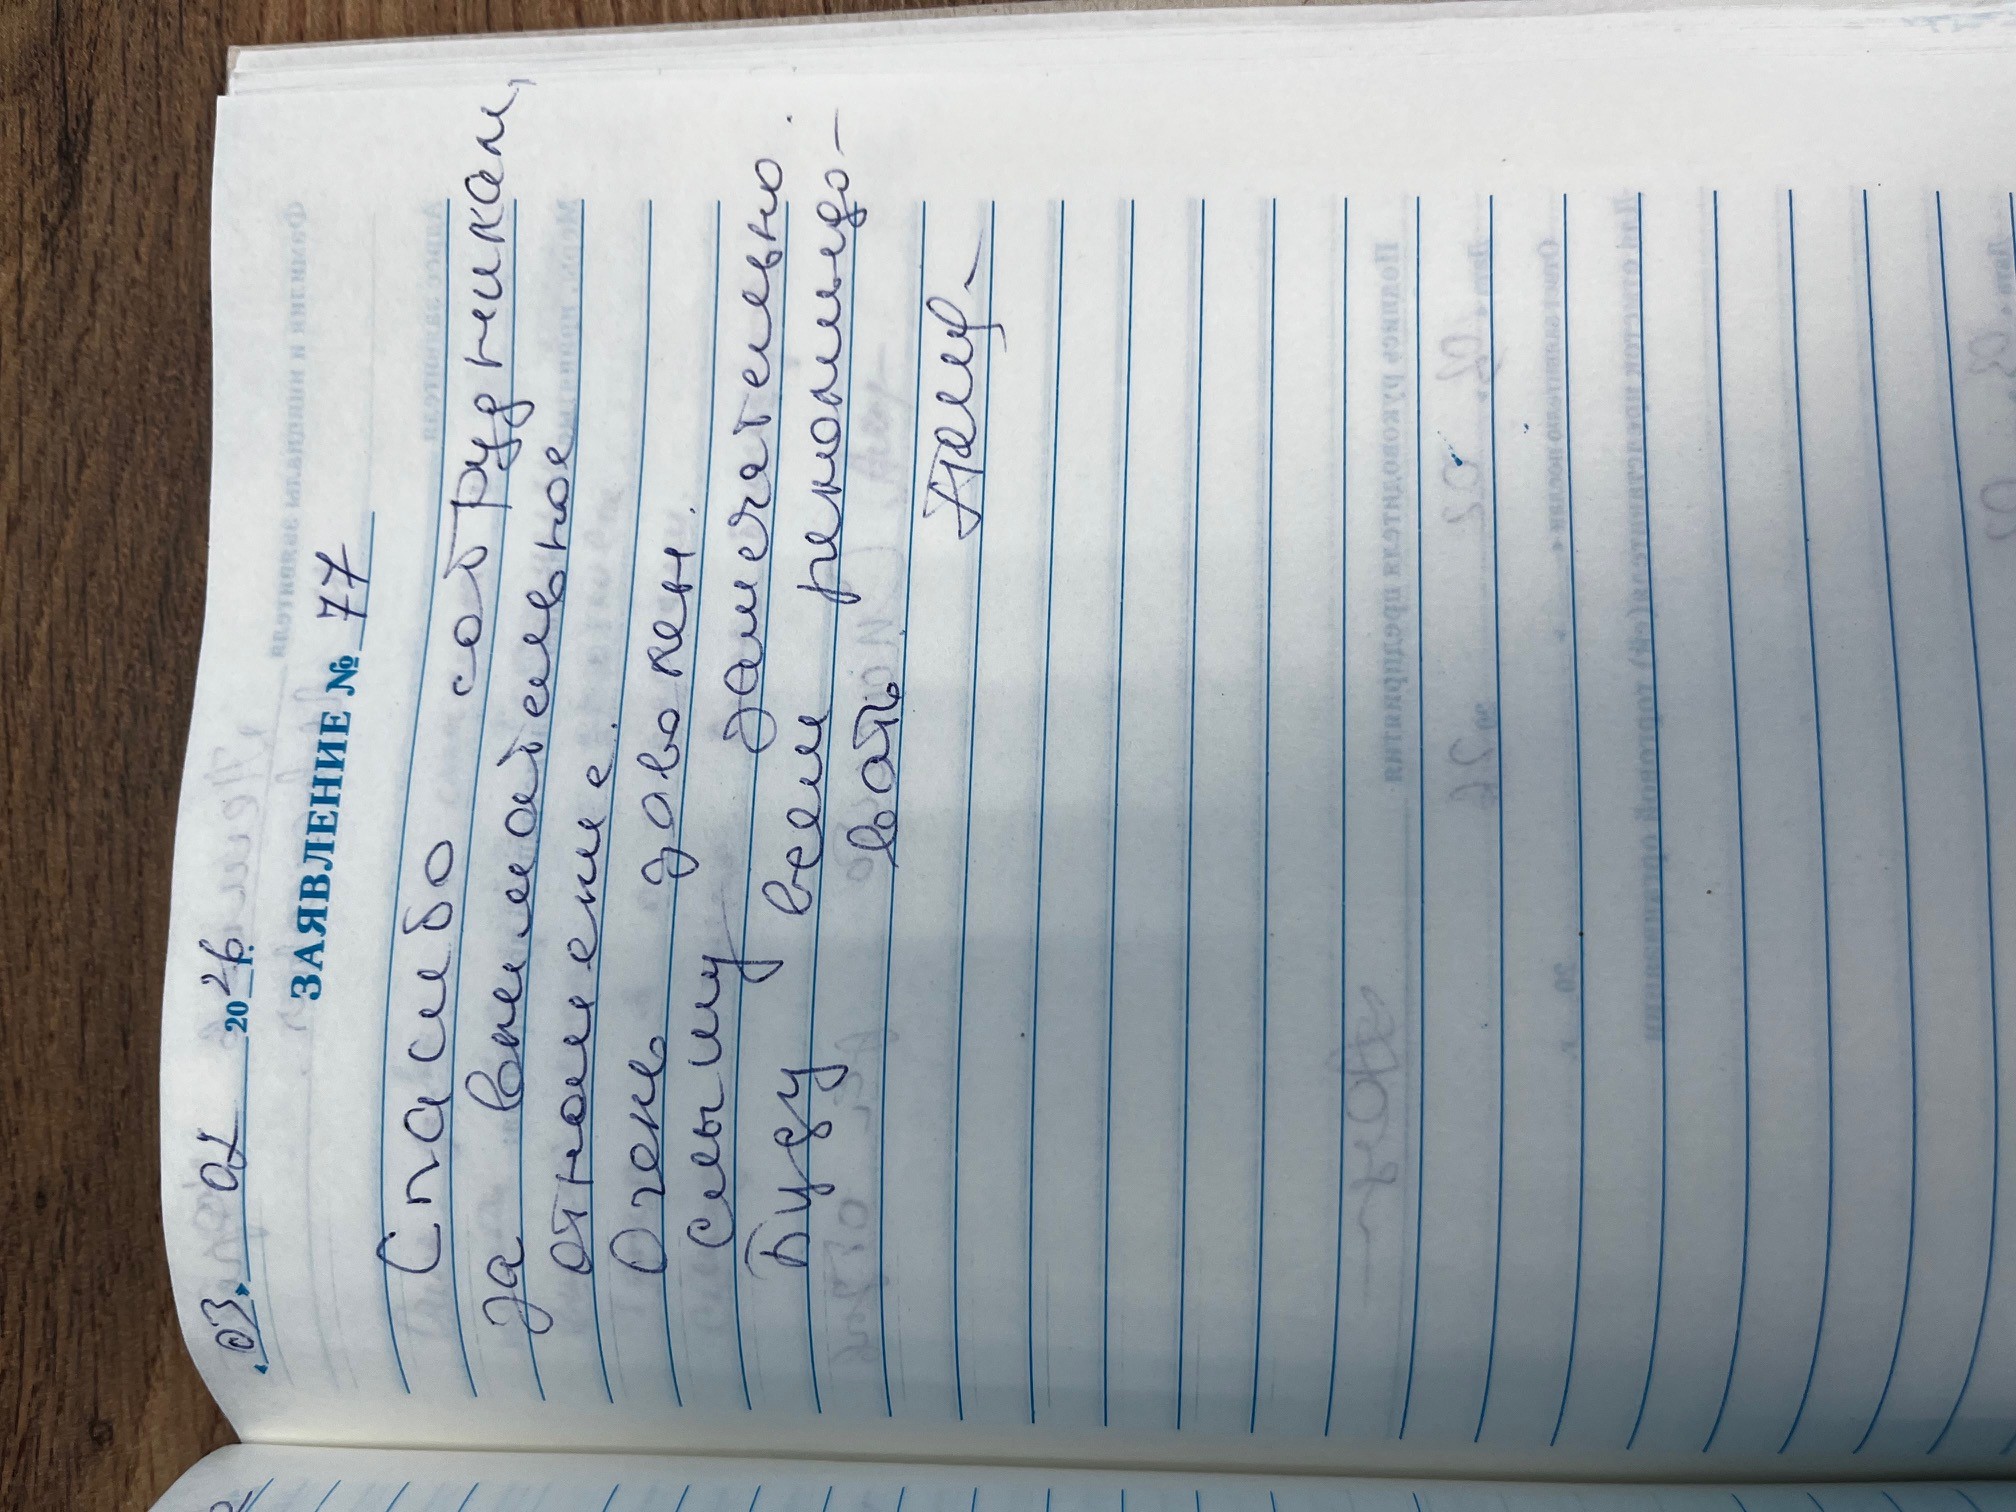 « 03 » 02 20 26 г.
ЗАЯВЛЕНИЕ № 77
Спасибо сотрудникам,
за внимательное
отношение.
Очень доволен.
Слышу замечательно.
Буду всем рекомендо-
вать